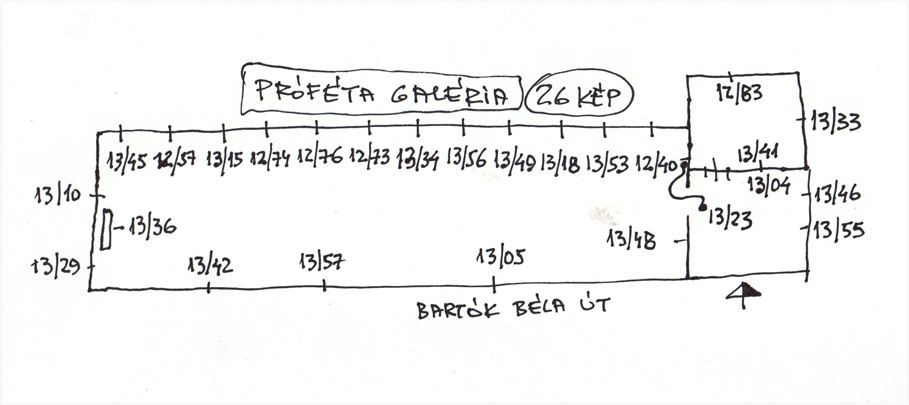 PRÓFÉTA GALÉRIA 26 KÉP
12/83
13/33
13/45 12/57 13/15 12/74 12/76 12/73 13/34 13/56 13/49 13/18 13/53 12/40
13/41
13/04
13/10
13/46
13/36
13/23
13/55
13/48
13/29
13/42 13/57 13/05
BARTÓK BÉLA ÚT